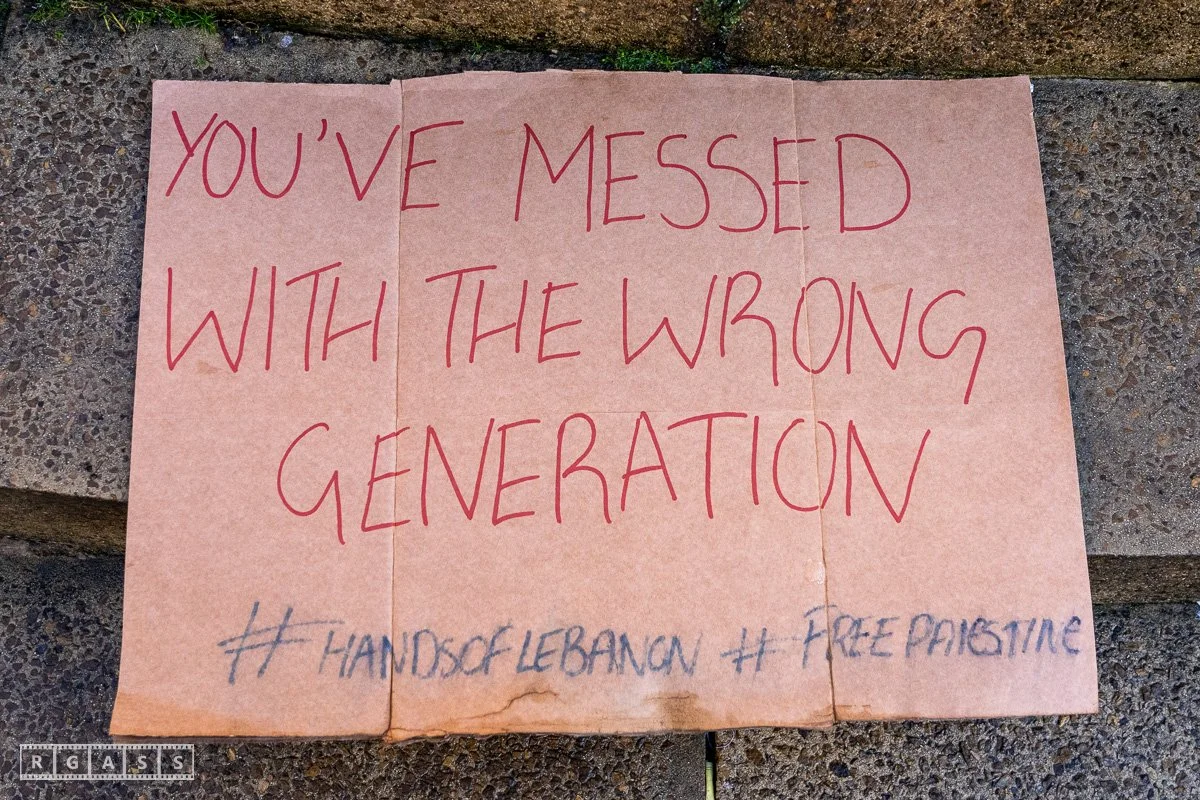 YOU'VE MESSED
WITH THE WRONG
GENERATION
#HANDSOFLEBANON #FREEPALESTINE
RGASS